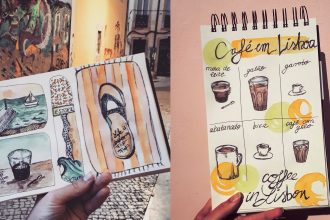 Café em Lisboa
meia de galão garoto
leite
abatanado bica café com
gelo
coffee
in Lisbon